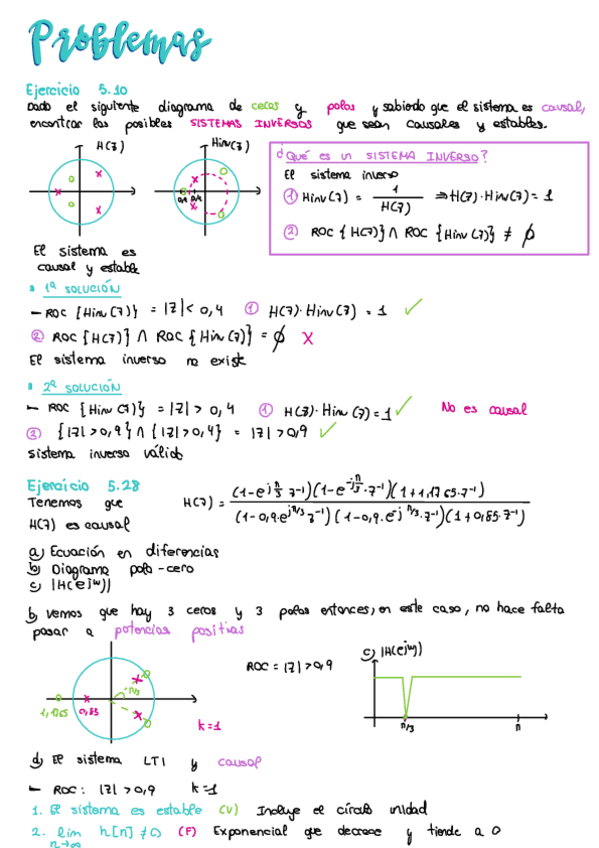 Problemas
Ejercicio 5.10
Dado el siguiente diagrama de ceros y polos y sabiendo que el sistema es causal,
encontrar los posibles SISTEMAS INVERSOS que sean causales y estables.
H(z)
Hinv(z)
¿Qué es un SISTEMA INVERSO?
El sistema inverso
① Hinv(z) = 1/H(z) ⇒ H(z)·Hinv(z) = 1
② ROC{H(z)} ∩ ROC{Hinv(z)} ≠ ∅
El sistema es
causal y estable
1ª SOLUCIÓN
- ROC {Hinv(z)} = |z| < 0,4 ① H(z)·Hinv(z) = 1 ✓
② ROC{H(z)} ∩ ROC{Hinv(z)} = ∅ X
El sistema inverso no existe
2ª SOLUCIÓN
- ROC {Hinv(z)} = |z| > 0,4 ① H(z)·Hinv(z) = 1 ✓ No es causal
② {|z| > 0,9} ∩ {|z| > 0,4} = |z| > 0,9 ✓
sistema inverso válido
Ejercicio 5.28
Tenemos que
H(z) es causal
H(z) = (1-e^{jπ/3} z^{-1})(1-e^{-jπ/3}·z^{-1})(1+1,1765·z^{-1}) / (1-0,9·e^{jπ/3} z^{-1})(1-0,9·e^{-jπ/3}·z^{-1})(1+0,85·z^{-1})
a) Ecuación en diferencias
b) Diagrama polo-cero
c) |H(e^{jω})|
b) Vemos que hay 3 ceros y 3 polos entonces, en este caso, no hace falta
pasar a potencias positivas
π/3
1,1765 0,85
k=1
ROC = |z| > 0,9
c) |H(e^{jω})|
π/3 π
d) El sistema LTI y causal
- ROC: |z| > 0,9 k=1
1. El sistema es estable (V) Incluye el círculo unidad
2. lim h[n] ≠ 0 (F) Exponencial que decrece y tiende a 0
n→∞